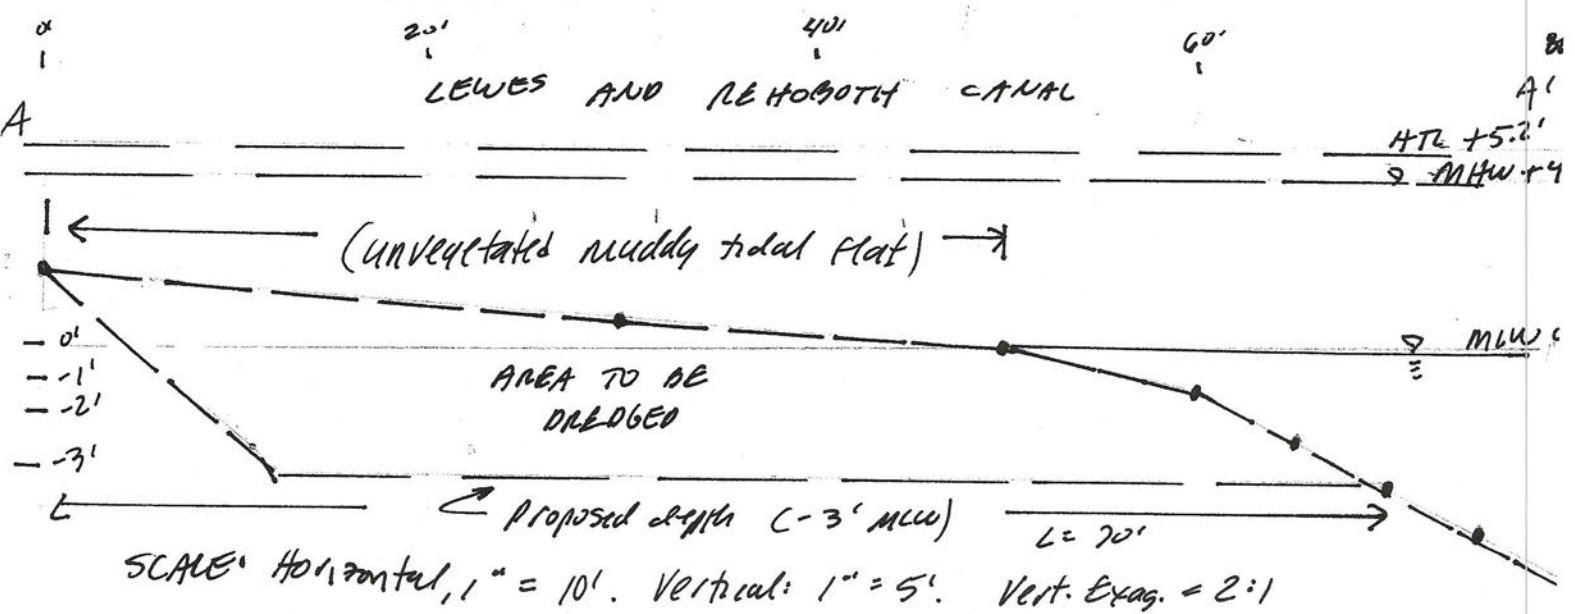 0' 20' 40' 60'
LEWES AND REHOBOTH CANAL
A A'
HTL +5.2'
MHW +4
(unvegetated muddy tidal flat)
0'
-1'
-2'
-3'
MLW
AREA TO BE
DREDGED
Proposed depth (-3' MLW)
L= 70'
SCALE: Horizontal, 1" = 10'. Vertical: 1" = 5'. Vert. Exag. = 2:1